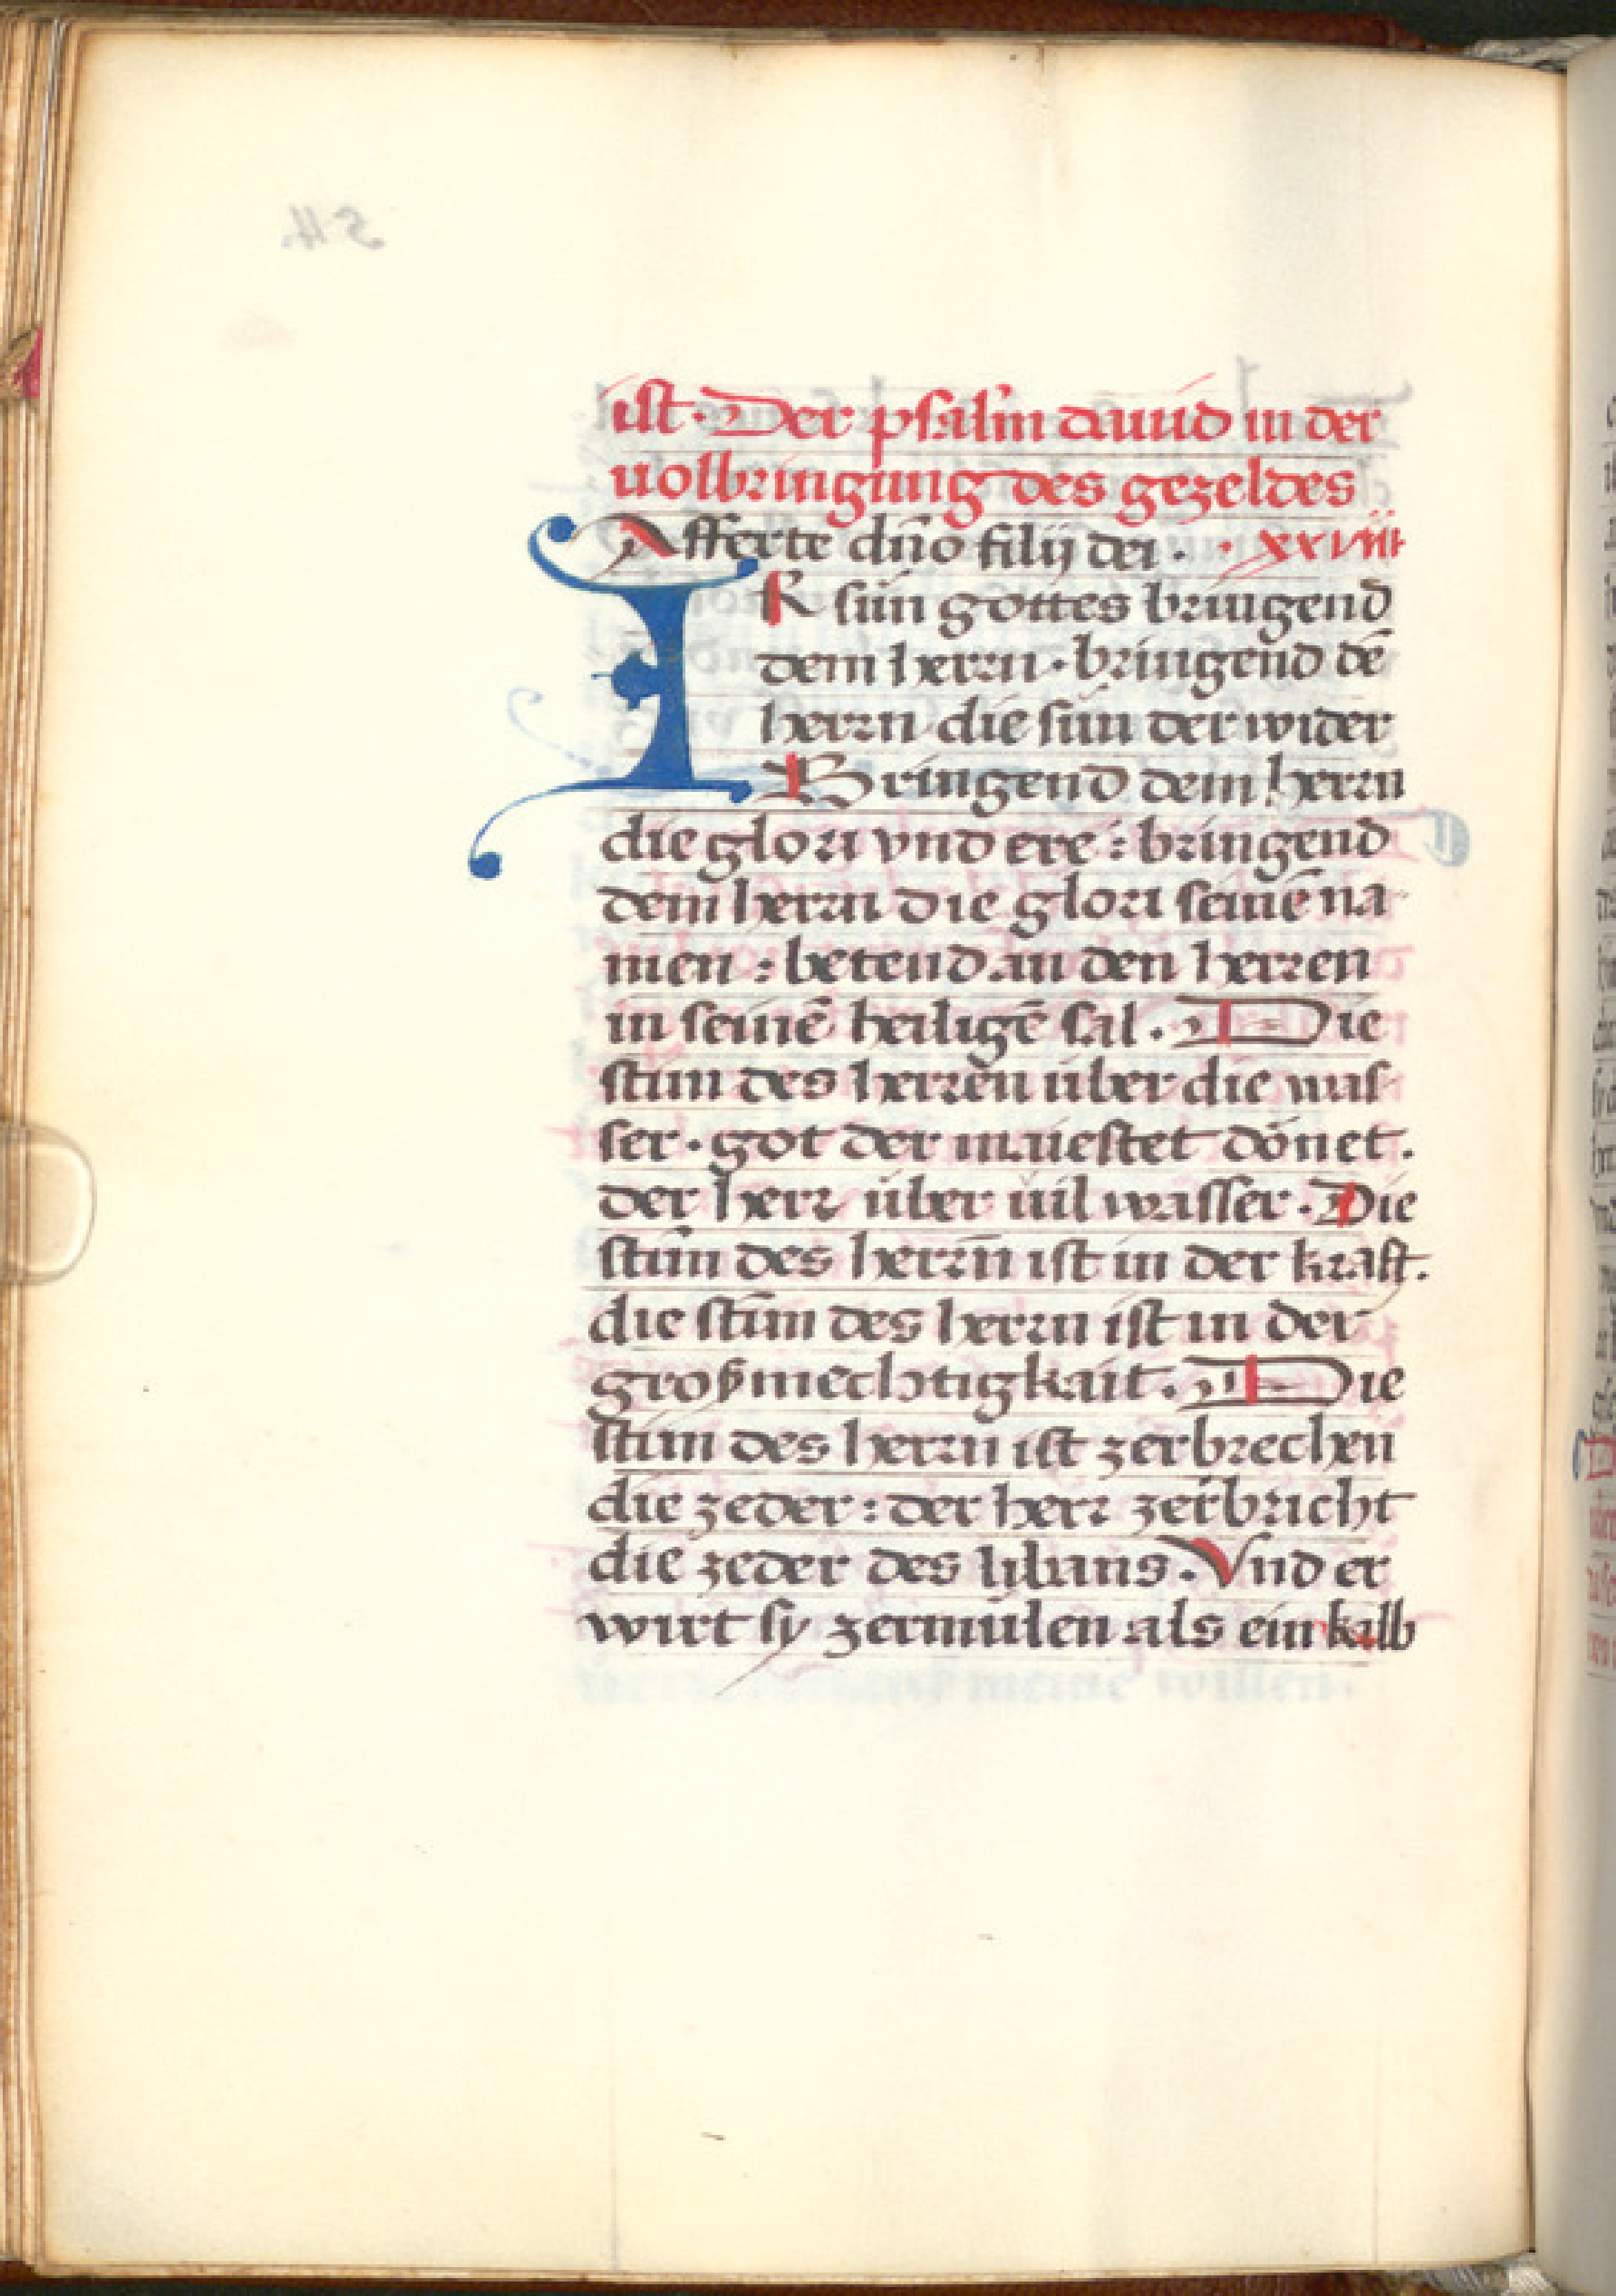 ist · Der psalm dauid in der
uolbringung des gezeldes
Afferte dño filij dei · · xxviii
IR sün gottes bringend
dem herrn · bringend dē
herrn die sün der wider
Bringend dem herrn
die glori vnd ere : bringend
dem herrn die glori seinē na
men : betend an den herren
in seinē heiligē sal · Die
stim des herren über die was
ser · got der maiestet dönet ·
der herr über uil wasser · Die
stim̄ des herrn̄ ist in der kraft ·
die stim̄ des herrn ist in der
großmechtigkait · Die
stim des herrn ist zerbrechen
die zeder : der herr zerbricht
die zeder des libans · Vnd er
wirt sy zermülen als ein kalb